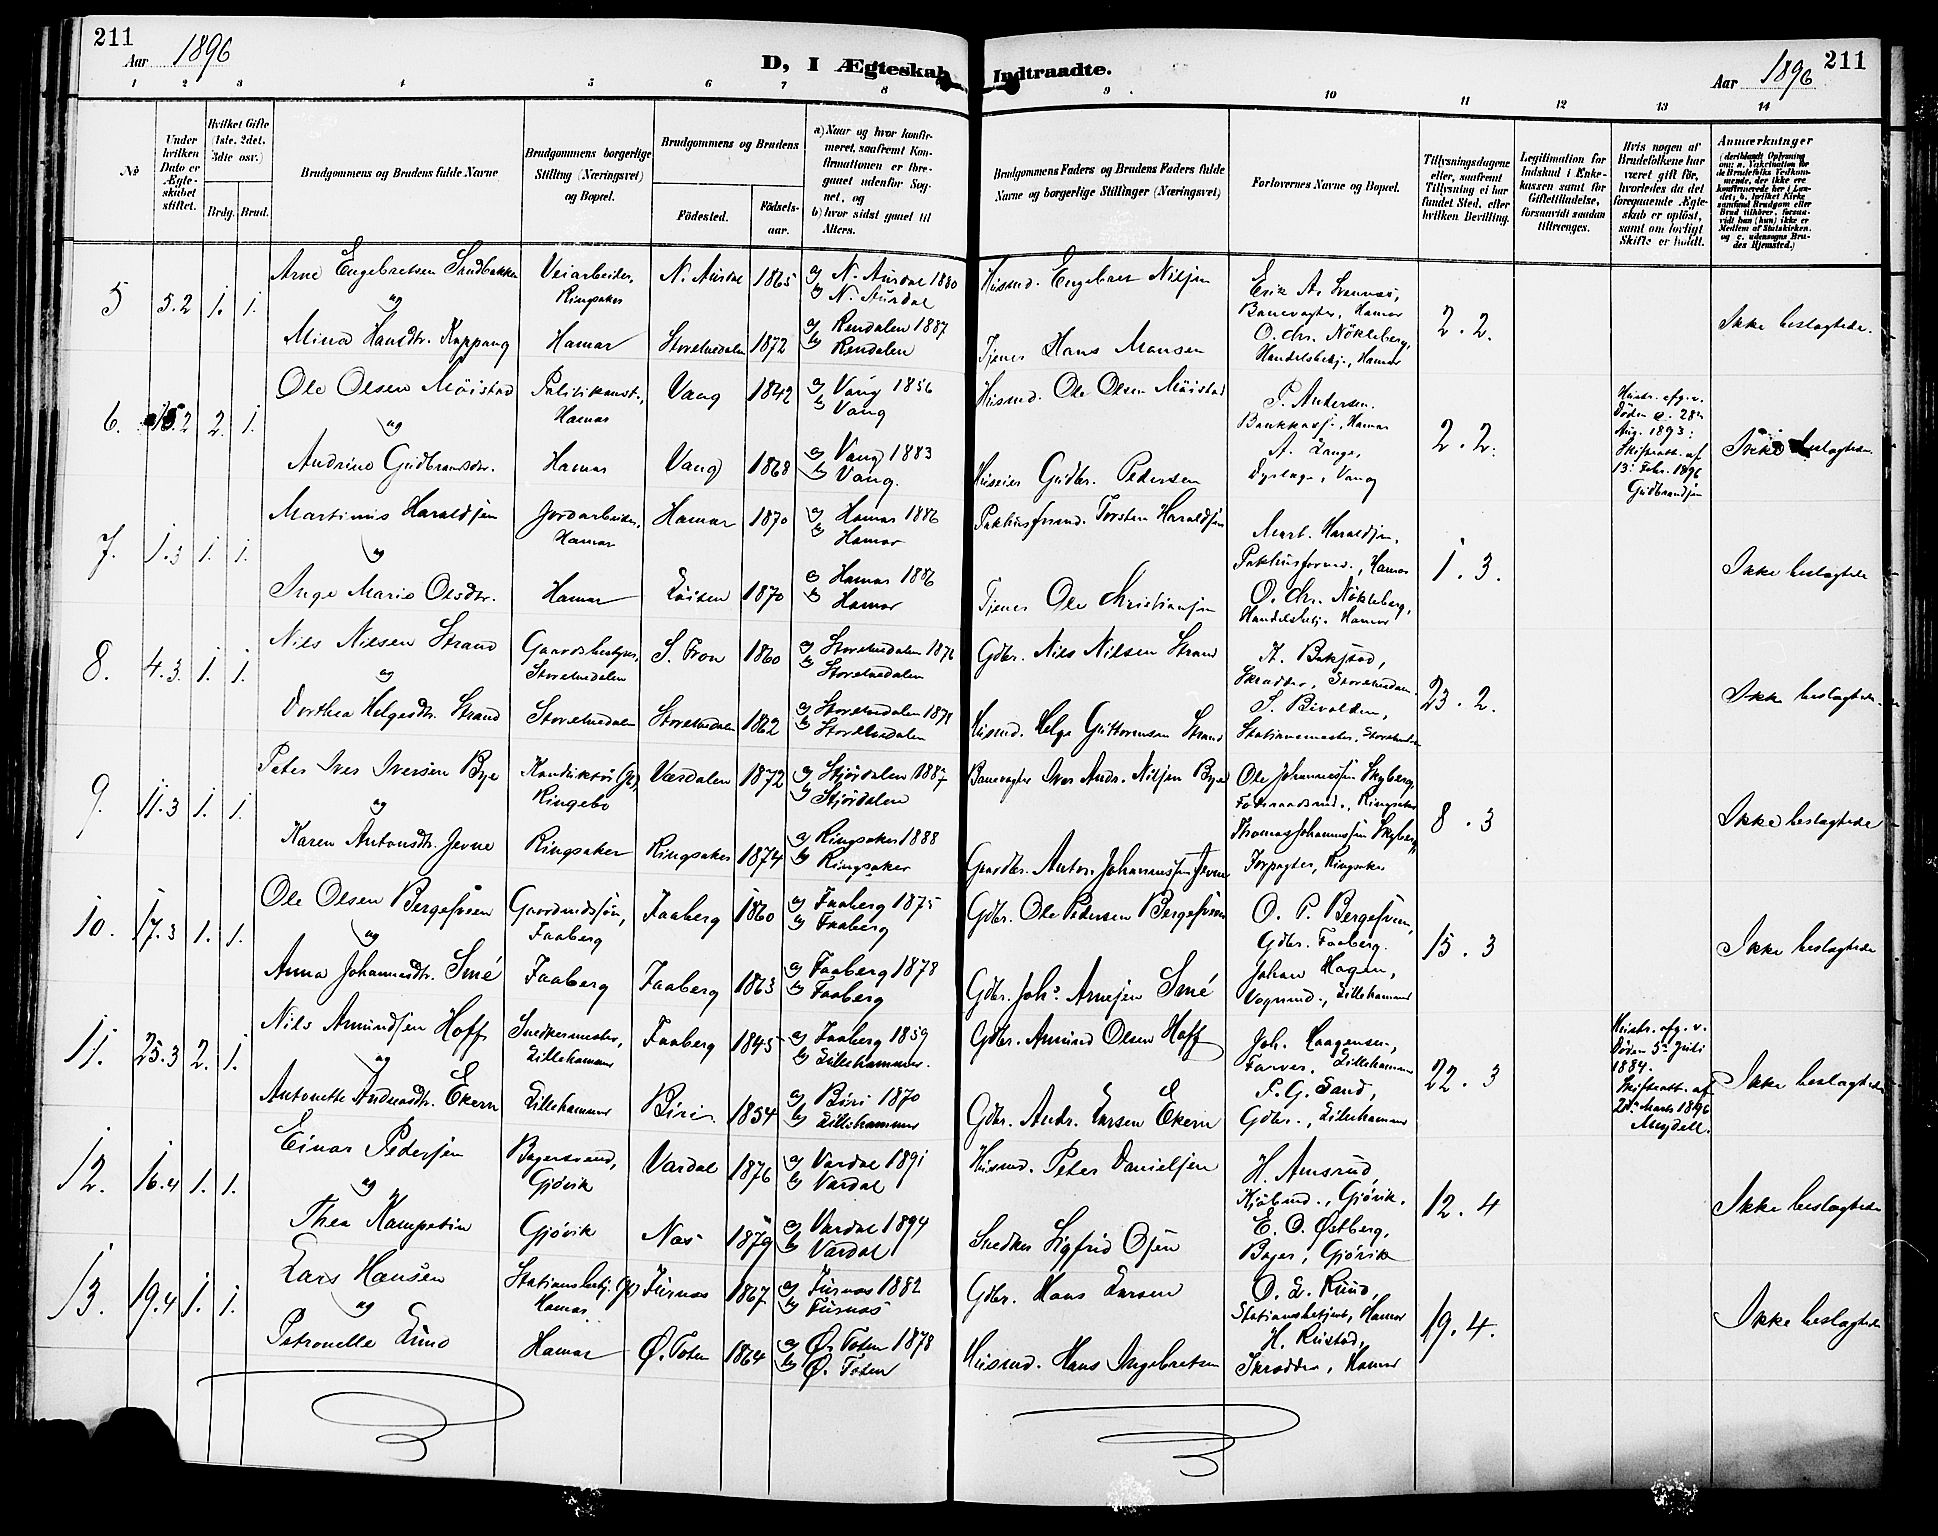 211
Aar 1896
D, I Ægteskab Indtraadte.
Aar 1896
211
1 2 3 4 5 6 7 8 9 10 11 12 13 14
No
Under hvilken Dato er Ægteskabet stiftet.
Hvilket Gifte (1ste, 2det, 3die osv.)
Brdg. Brud.
Brudgommens og Brudens fulde Navne
Brudgommens borgerlige Stilling (Næringsvei) og Bopæl.
Brudgommens og Brudens
Fødested.
Fødselsaar.
a) Naar og hvor konfirmeret, saafremt Konfirmationen er foregaaet udenfor Sognet, og
b) hvor sidst gaaet til Alters.
Brudgommens Faders og Brudens Faders fulde Navne og borgerlige Stillinger (Næringsvei)
Forlovernes Navne og Bopæl.
Tillysningsdagene eller, saafremt Tillysning ei har fundet Sted, efter hvilken Bevilling.
Legitimation for Indskud i Enkekassen samt for Giftetilladelse, forsaavidt saadan tiltrænges.
Hvis nogen af Brudefolkene har været gift før, hvorledes da det foregaaende Ægteskab er opløst, samt om lovligt Skifte er holdt.
Anmærkninger
5 5.2 1. 1.
Arne Engebretsen
og
Mina Hansdtr. Koppang
Veiarbeider, Ringsaker
Hamar
N. Aurdal 1865
Storelvedalen 1872
a) N. Aurdal 1880
b) N. Aurdal
a) Rendalen 1887
b) Rendalen
Husmd. Engebret Nilsen
Tjener Hans Monsen
Erik A.
Banevogter, Hamar
O. Chr. Nökleberg,
Handelsbetj., Hamar
2.2.
Ikke beslægtede.
6. 2. 1.
Ole Olsen Möistad
og
Andrine Gudbrandsdtr.
Politikonst., Hamar
Hamar
Vang 1842
Vang 1868
a) Vang 1856
b) Vang
a) Vang 1883
b) Vang.
Husmd. Ole Olsen Möistad
Huseier Gudbr. Pedersen
P. Andersen.
Hamar
A. Lange,
Dyrlæge, Vang
2.2.
Hustr. afg. v.
Döden d. 28de
Aug. 1893:
Skifteatt. af
13. Febr. 1896
Gudbrandsen
Ikke beslægtede.
7. 1.3 1. 1.
Martinius Haraldsen
og
Inge Marie Olsdtr.
Jordarbeider, Hamar
Hamar
Hamar 1870
Löiten 1870
a) Hamar 1886
b) Hamar
a) Hamar 1886
b) Hamar
Pakhusformd. Torsten Haraldsen
Tjener Ole Christiansen
Mart. Haraldsen,
Pakhusformd., Hamar
O. Chr. Nökleberg,
Handelsbetj. Hamar
1.3.
Ikke beslægtede
8. 4.3. 1. 1.
Nils Nilsen Strand
og
Dorthea Helgesdtr. Strand
Gaardsbestyrer, Storelvedalen
Storelvedalen
S. Fron 1860
Storelvedalen 1862
a) Storelvedalen 1876
b) Storelvedalen
a) Storelvedalen 1878
b) Storelvedalen
Gdbr. Nils Nilsen Strand
Husmd. Helge Guttormsen Strand
Skrædder, Storelvedalen
Stationsmester, Storelvedalen
23.2.
Ikke beslægtede.
9. 11.3 1. 1.
Peter Iver Iversen Bye
og
Karen Antonsdtr. Jevne
Konduktör, Ringebo
Ringsaker
Værdalen 1872
Ringsaker 1874
a) Stjördalen 1887
b) Stjördalen
a) Ringsaker 1888
b) Ringsaker
Banevogter Iver Andr. Nilsen Bye
Gaardbr. Anton Johannessen Jevne
Ole Johannessen Skyberg,
Ringsaker
Thomas Johannessen Skyberg,
Forpagter, Ringsaker
8.3
Ikke beslægtede
10. 17.3 1. 1.
Ole Olsen Bergesveen
og
Anna Johannesdtr. Smé
Gaardmdssön, Faaberg
Faaberg
Faaberg 1860
Faaberg 1863
a) Faaberg 1875
b) Faaberg
a) Faaberg 1878
b) Faaberg
Gdbr. Ole Pedersen Bergesveen
Gdbr. Johs. Arnesen Smé
O. P. Bergesveen,
Gdbr. Faaberg.
Johan Hagen,
Vognmd., Lillehammer
15.3
Ikke beslægtede
11. 25.3 2. 1.
Nils Amundsen Hoff
og
Antonette Andreasdtr. Ekern
Snedkermester, Lillehammer
Lillehammer
Faaberg 1845
Biri 1854
a) Faaberg 1859
b) Lillehammer.
a) Biri 1870
b) Lillehammer
Gdbr. Amund Olsen Hoff
Gdbr. Andr. Larsen Ekern
Joh. Haagensen,
Farver, Lillehammer
P. G. Sand,
Gdbr., Lillehammer
22.3
Hustr. afg. v.
Döden 5. Juli
1884.
Skifteatt. af
Marts 1896
Mejdell.
Ikke beslægtede
12. 16.4 1. 1.
Einar Pedersen
og
Thea Kampetin
Bagersvend, Gjövik
Gjövik
Vardal 1876
Næs 1879
a) Vardal 1891
b) Vardal
a) Vardal 1894
b) Vardal
Husmd. Peter Danielsen
Snedker Sigfrid Olsen
H. Amsrud,
Kjöbmd., Gjövik.
E. O. Østberg,
Bager, Gjövik
12.4
Ikke beslægtede
13. 19.4 1. 1.
Lars Hansen
og
Petronelle Lund
Stationsbetj., Hamar
Hamar
Furnæs 1867
Ø. Toten 1864
a) Furnæs 1882
b) Furnæs
a) Ø. Toten 1878
b) Ø. Toten
Gdbr. Hans Larsen
Husmd. Hans Ingebretsen
O. L. Ruud,
Stationsbetjent, Hamar
H. Rustad,
Skrædder, Hamar
19.4.
Ikke beslægtede